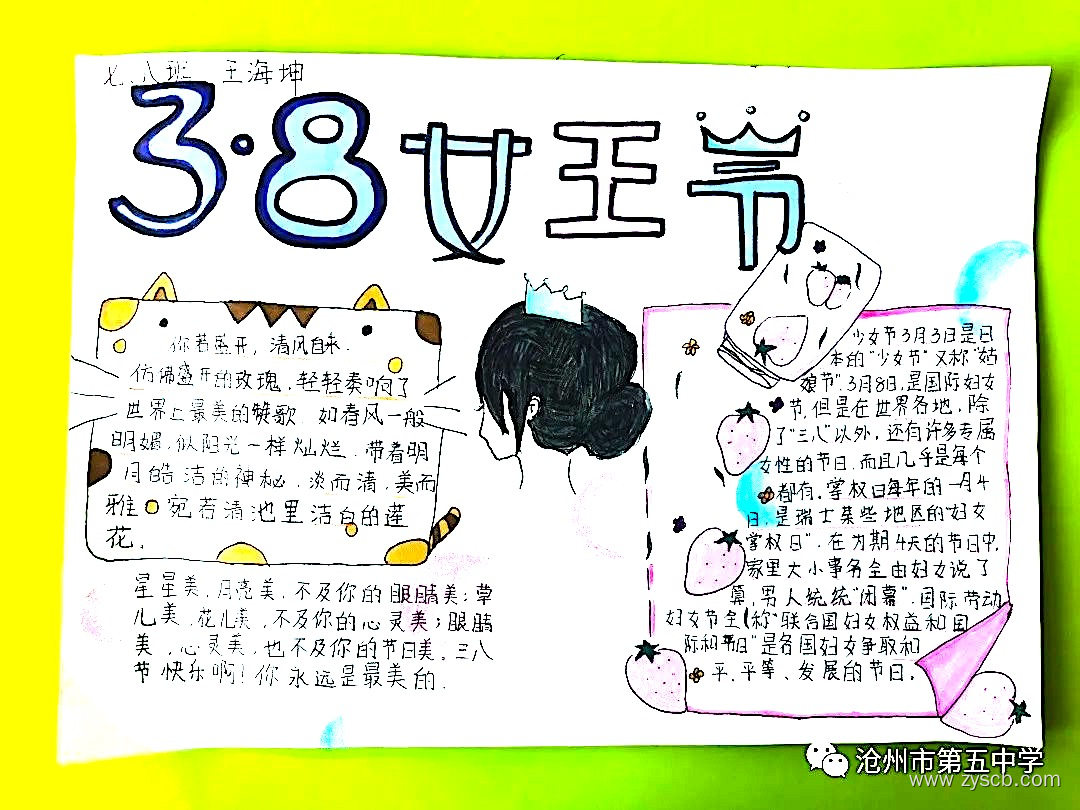 七、八班 王海坤
3·8女王节
你若盛开，清风自来.
仿佛盛开的玫瑰，轻轻奏响了
世界上最美的赞歌 如春风一般
明媚，似阳光一样灿烂，带着明
月皓洁的神秘，淡而清，美而
雅 宛若清池里洁白的莲
花。
星星美，月亮美，不及你的眼睛美；草
儿美，花儿美，不及你的心灵美；眼睛
美，心灵美，也不及你的节日美，三八
节快乐啊！你永远是最美的.
少女节3月3日是日
本的"少女节"又称"姑
娘节".3月8日，是国际妇女
节.但是在世界各地，除
了"三八"以外，还有许多专属
女性的节日，而且几乎是每个
都有.掌权日每年的一月4
日，是瑞士某些地区的"妇女
掌权日"，在为期4天的节日中，
家里大小事务全由妇女说了
算，男人统统"闭幕"，国际劳动
妇女节全(称"联合国妇女权益和国
际和平日"是各国妇女争取和
平，平等、发展的节日.
沧州市第五中学
www.zyscb.com